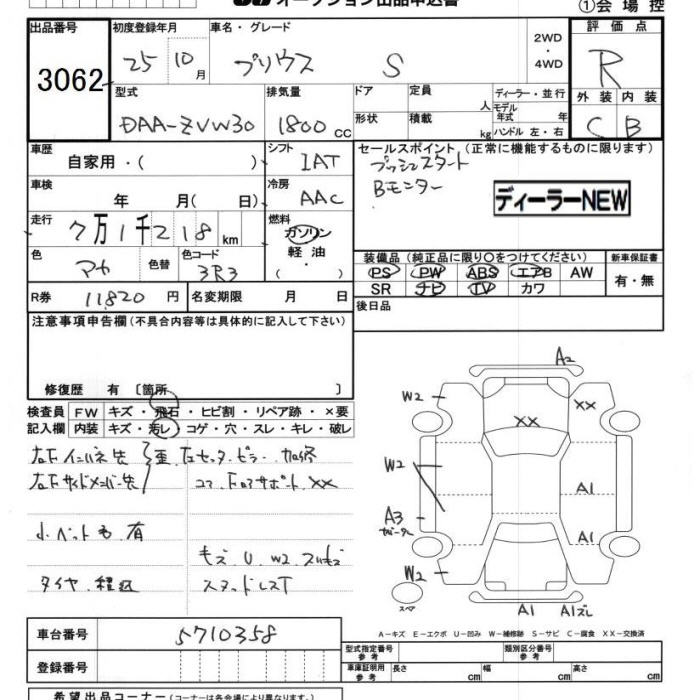 オークション出品申込書
①会場控
出品番号 3062
初度登録年月 25 10月
車名・グレード プリウス S
2WD・4WD
評価点 R
外装 C 内装 B
型式 DAA-ZVW30
排気量 1800 CC
ドア 定員 人
形状 積載 kg
ディーラー・並行
モデル年式 年
ハンドル 左・右
車歴 自家用・( )
シフト IAT
車検 年 月( 日)
冷房 AAC
走行 7万1千218km
燃料 ガソリン 軽油・( )
色 アカ 色替 色コード 3R3
R券 11820円 名変期限 月 日
セールスポイント (正常に機能するものに限ります)
プッシュスタート
Bモニター
ディーラーNEW
装備品 (純正品に限り○をつけてください) 新車保証書
PS PW ABS エアB AW 有・無
SR ナビ TV カワ
後日品
注意事項申告欄(不具合内容等は具体的に記入して下さい)
修復歴 有 〔箇所 〕
検査員記入欄
FW キズ・飛石・ヒビ割・リペア跡・×要
内装 キズ・汚レ・コゲ・穴・スレ・キレ・破レ
左右F インパネ先
左右F サイドメンバー先
左センターピラー 加修
コア F ロアサポート XX
小・ペット毛 有
キズ U W2
タイヤ 積込
スタッドレスT
A2
W2
XX
XX
W2
A1
A3
A1
W2
スペア
A1 A1ズレ
A-キズ E-エクボ U-凹み W-補修跡 S-サビ C-腐食 XX-交換済
車台番号 5710358
登録番号
型式指定番号 参考 類別区分番号 参考
車庫証明用 参考 長さ cm 幅 cm 高さ cm
希望出品コーナー(コーナーは各会場により異なります。)